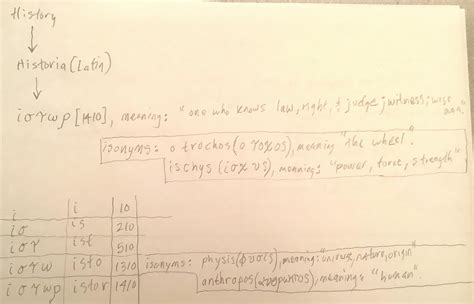 History
Historia (Latin)
ιστωρ [1410], meaning: "one who knows law, right, & judge; witness; wise man."
isonyms: o trochos (ο τροχος), meaning "the wheel".
ischys (ισχυς), meaning: "power, force, strength"
i i 10
ισ is 210
ιστ ist 510
ιστω isto 1310 isonyms: physis (φυσις), meaning: "universe, nature, origin"
ιστωρ istor 1410 anthropos (ανθρωπος), meaning: "human".